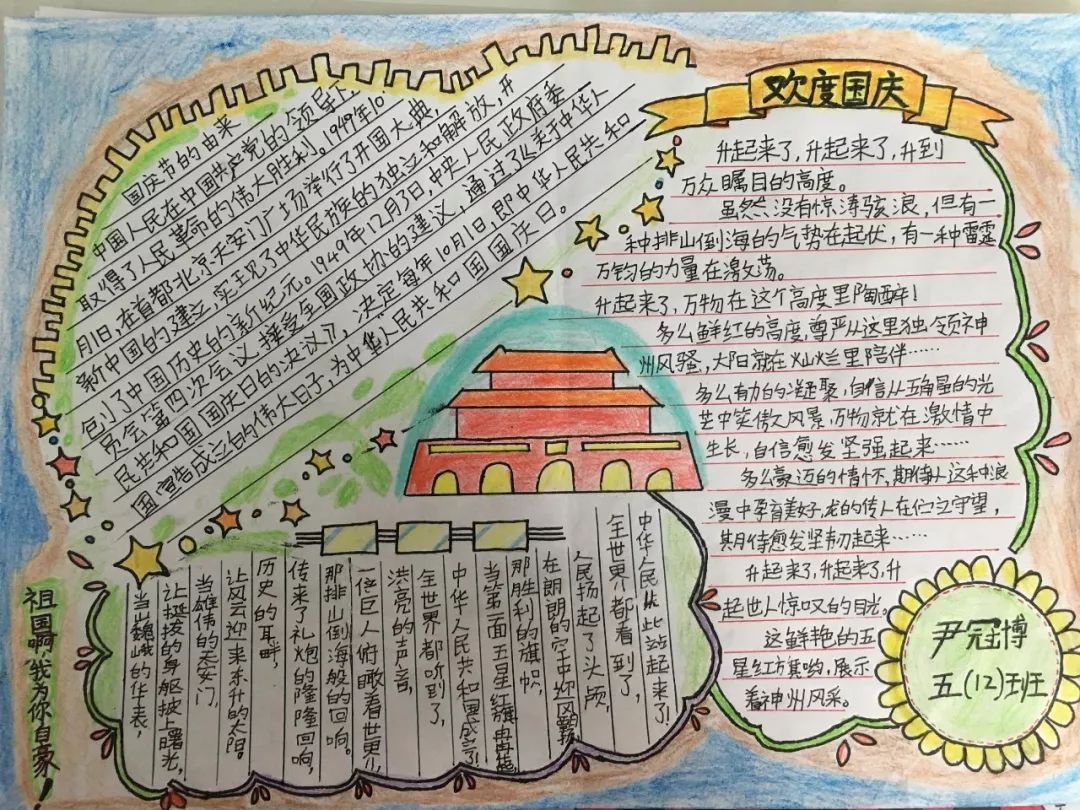 欢度国庆
国庆节的由来
中国人民在中国共产党的领导下,
取得了人民革命的伟大胜利。1949年10
月1日,在首都北京天安门广场举行了开国大典,
新中国的建立,实现了中华民族的独立和解放,开
包了中国历史的新纪元。1949年12月3日,中央人民政府委
员会第四次会议,接受全国政协的建议,通过了《关于中华人
民共和国国庆日的决议》,决定每年10月1日,即中华人民共和
国宣告成立的伟大日子,为中华人民共和国国庆日。
升起来了,升起来了,升到
万众瞩目的高度。
虽然没有惊涛骇浪,但有一
种排山倒海的气势在起伏,有一种雷霆
万钧的力量在激荡。
升起来了,万物在这个高度里陶醉!
多么鲜红的高度,尊严从这里独领神
州风骚,太阳就在灿烂里陪伴……
多么有力的凝聚,自信从五角星的光
芒中笑傲风景,万物就在激情中
生长,自信愈发坚强起来……
多么豪迈的情怀,期待从这种浪
漫中孕育美好,龙的传人在们之守望,
期待愈发坚韧起来……
升起来了,升起来了,升
起世人惊叹的目光。
这鲜艳的五
星红旗哟,展示
着神州风采。
当巍峨的华表,
让挺拔的身躯披上曙光,
当雄伟的天安门,
让风云迎来东升的太阳。
历史的耳畔,
传来了礼炮的隆隆回响,
那排山倒海般的回响。
一位巨人俯瞰着世界,
洪亮的声音,
全世界都听到了,
中华人民共和国成立了!
当第一面五星红旗冉冉
那胜利的旗帜,
在朗朗的空中迎风
人民扬起了头颅,
全世界都看到了,
中华人民从此站起来了!
祖国啊,我为你自豪!
尹冠博
五(12)班